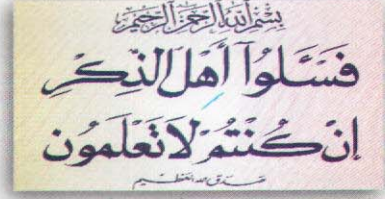 بِسْمِ اللَّهِ الرَّحْمَنِ الرَّحِيمِ
فَسْـَٔلُوٓا۟ أَهْلَ الذِّكْرِ
إِنْ كُنْتُمْ لَا تَعْلَمُونَ
صدق الله العظيم